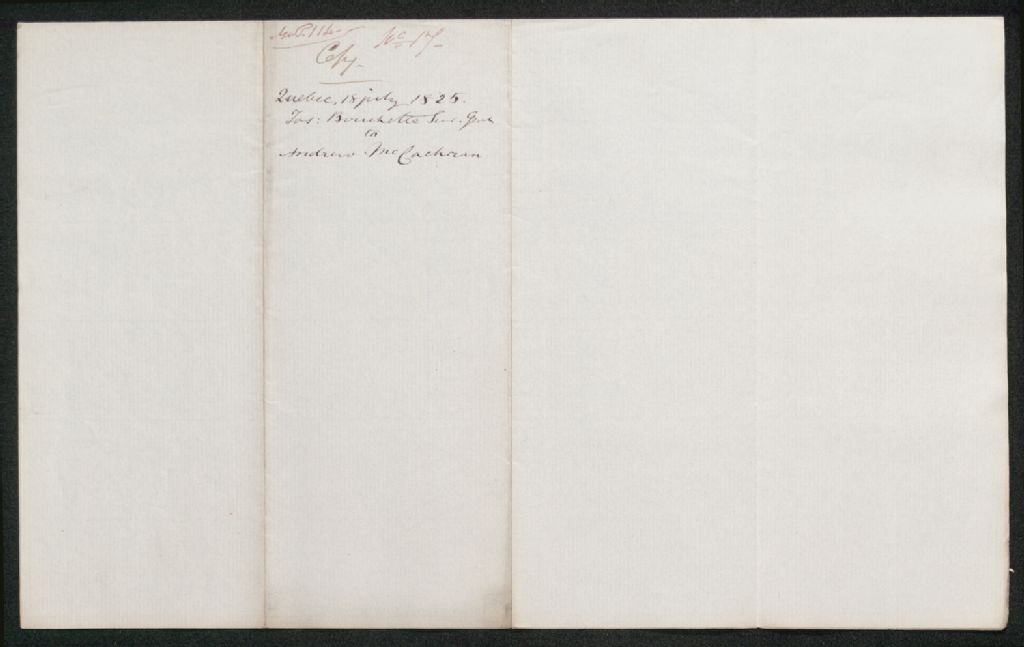 No 17
Copy.
Quebec, 18 july 1825.
Jos: Bouchette Sur. Genl
to
Andrew McCachran